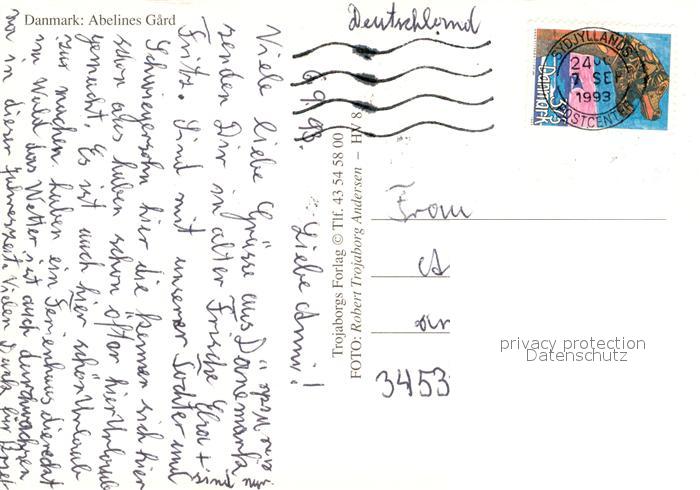 Danmark: Abelines Gård
Deutschland
SYDJYLLANDS
24
7 SEP
1993
POSTCENTER
Danmark
6.9.93.
Liebe Anni!
Viele liebe Grüsse aus Dänemark
senden Dir in alter Frische
Fritz. Sind mit unserer Tochter und
Schwiegersohn hier die kennen sich hier
schon aus haben schon öfter hier Urlaub
gemacht. Es ist auch hier schön Urlaub
zu machen haben ein Ferienhaus direckt
im Wald das Wetter ist auch durchwachsen
in dieser Jahreszeit. Vielen Dank für
Trojaborgs Forlag © Tlf. 43 54 58 00
FOTO: Robert Trojaborg Andersen – HV 8
Frau
A
3453
privacy protection
Datenschutz